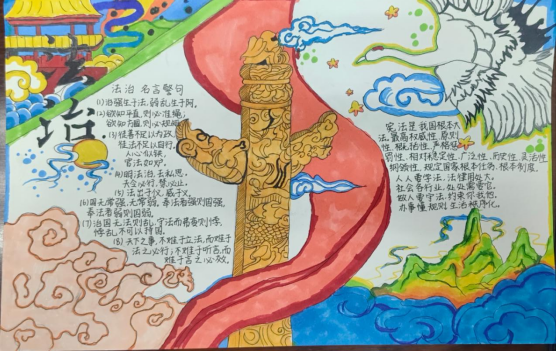 法治
法治 名言警句
(1)治强生于法,弱乱生于阿。
(2)欲知平直,则必准绳;
欲知方圆,则必规矩。
(3)徒善不足以为政,
徒法不足以自行。
人心似铁,
官法如炉。
(4)明法治,去私恩。
夫令必行,禁必止。
(6)国无常强,无常弱。奉法者强则国强,
奉法者弱则国弱。
(7)治国无法则乱,守法而弗变则悖,
悖乱不可以持国。
(8)天下之事,不难于立法,而难于
法之必行;不难于听言,而
难于言之必效。
宪法是我国根本大
法,最高权威性,原则
性,概括性,
相对稳定性,广泛性,历史性,灵活性
纲领性,规定国家根本任务,根本制度。
人人要学法,法律用处大。
社会各行业,
做人要守法,约束你我他。
办事懂规则,生活秩序化。